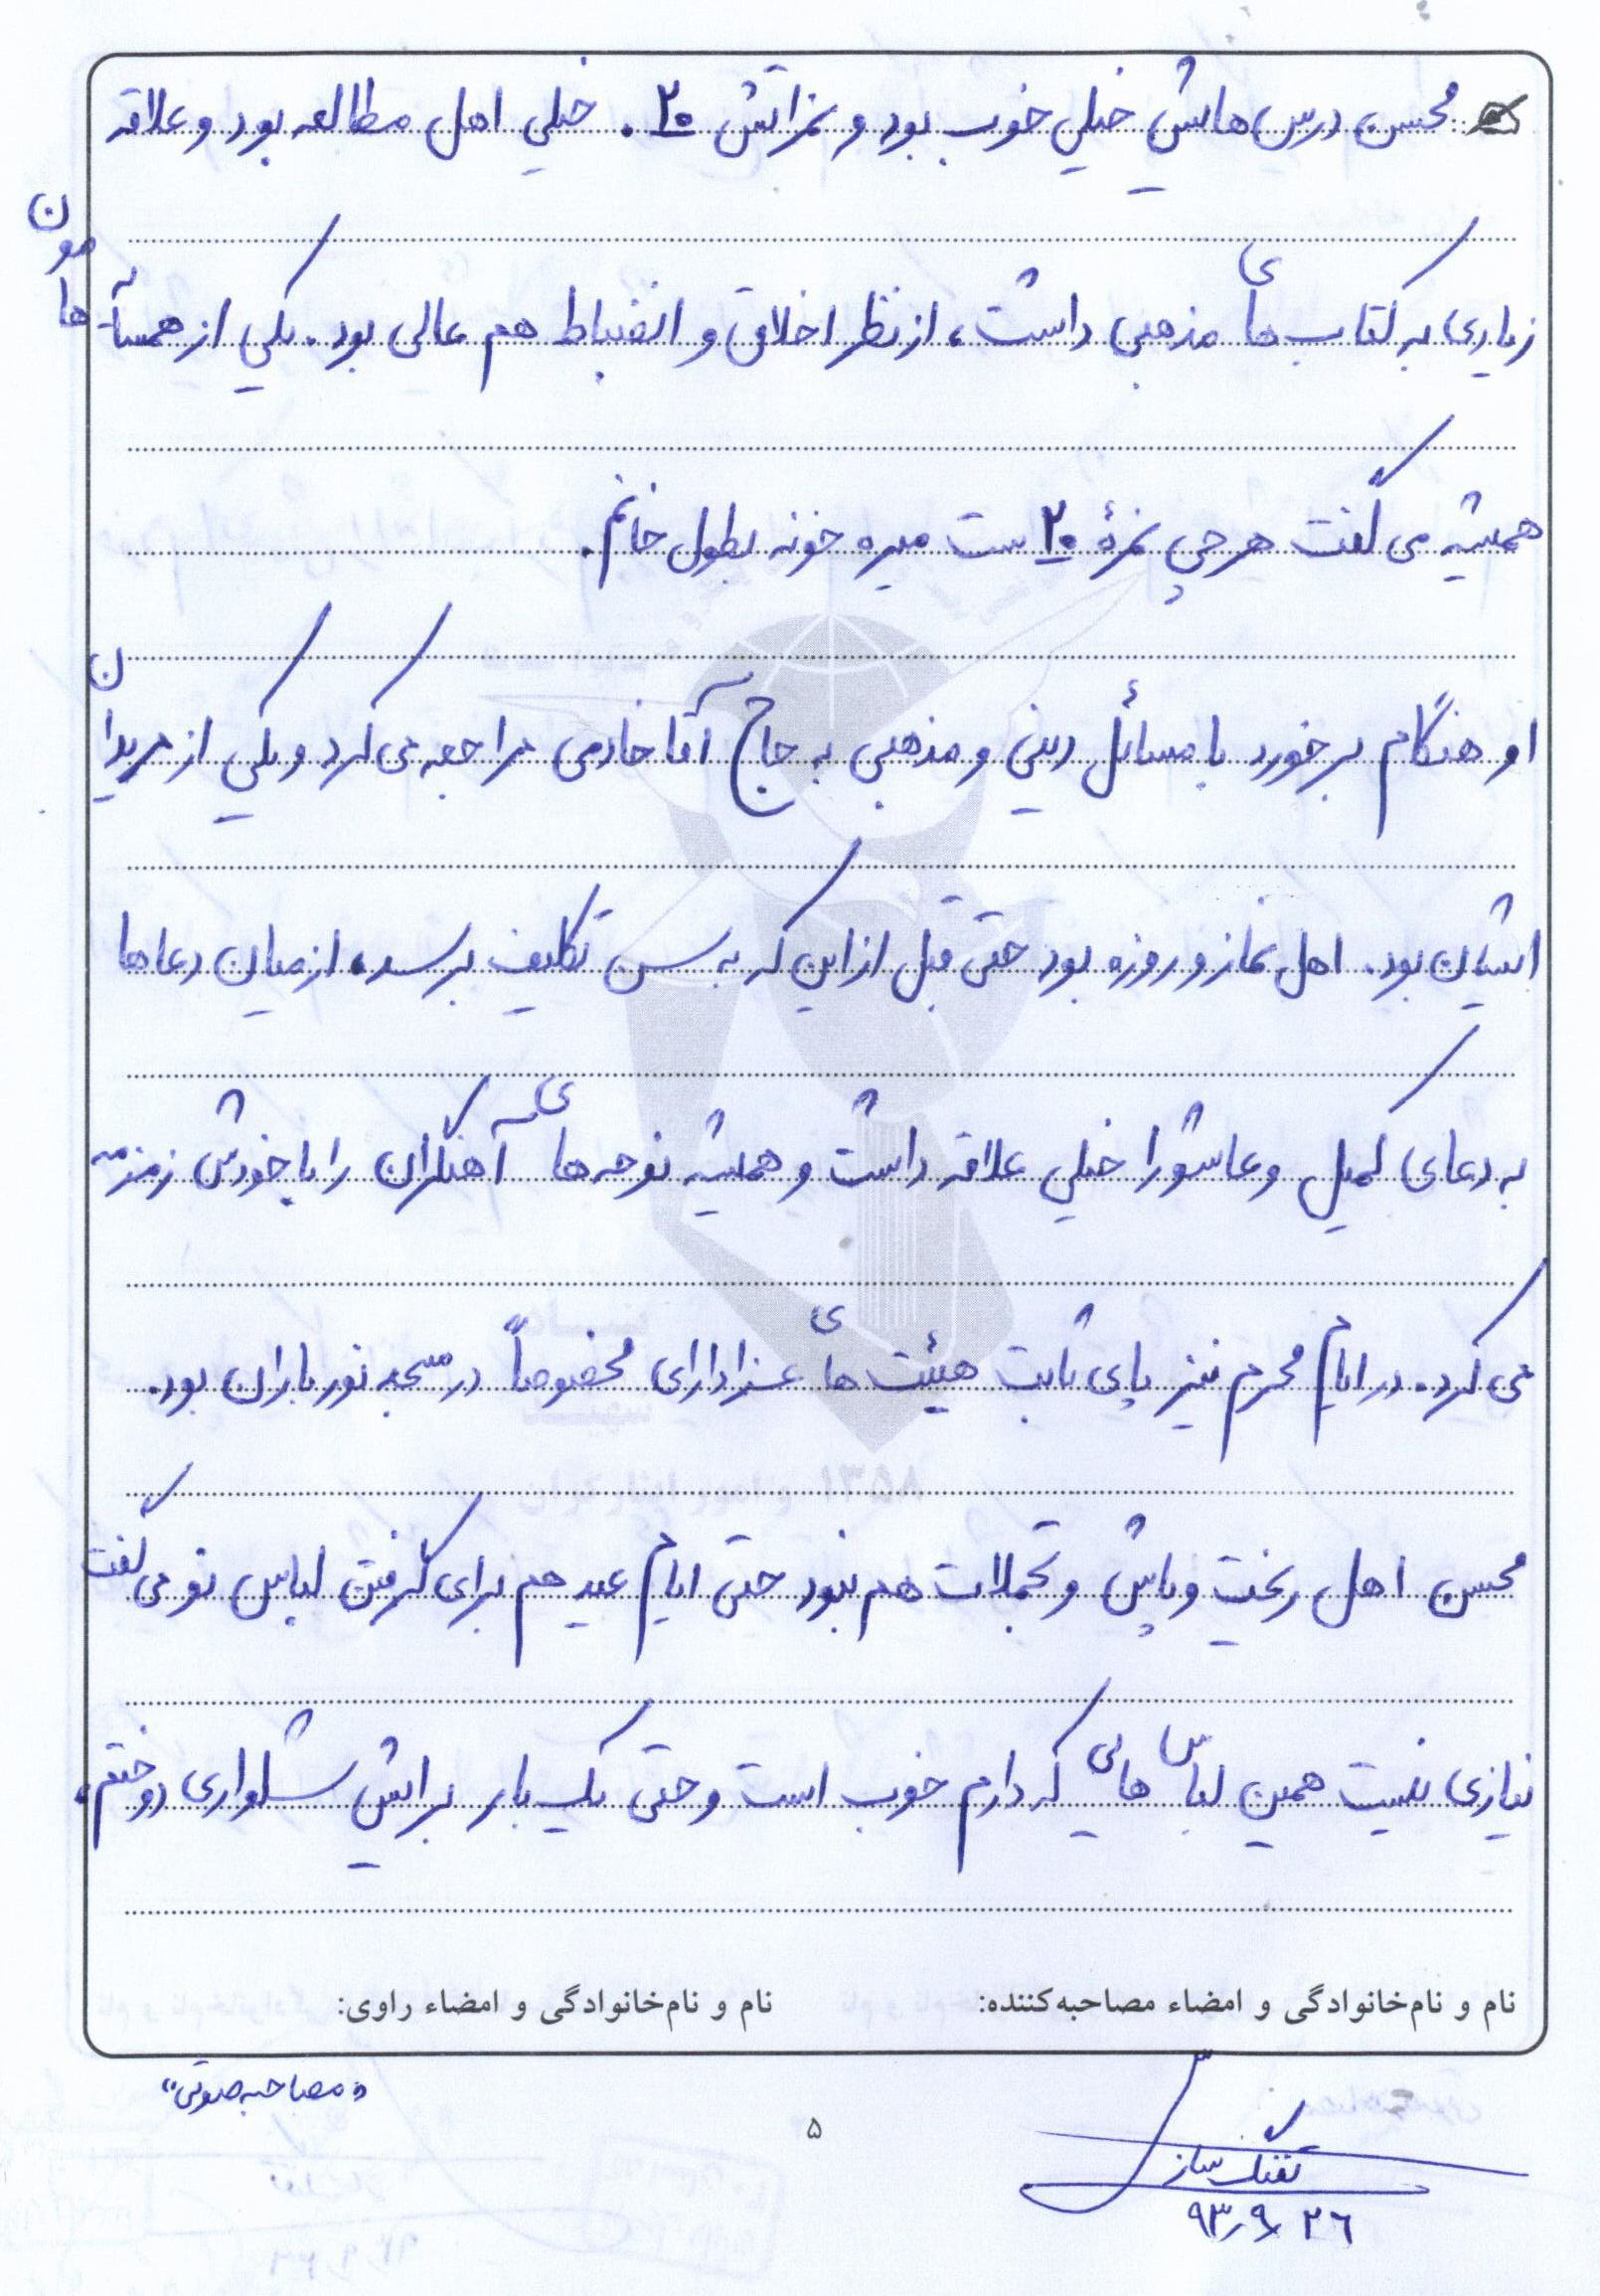 محسن درس‌هایش خیلی خوب بود و نمراتش ۲۰. خیلی اهل مطالعه بود و علاقه
زیادی به کتاب‌های مذهبی داشت، از نظر اخلاق و انضباط هم عالی بود. یکی از همسایه‌هامون
همیشه می‌گفت هر چی نمرهٔ ۲۰ ست میره خونه بطول خانم.
او هنگام برخورد با مسائل دینی و مذهبی به حاج آقا خادمی مراجعه می‌کرد و یکی از مریدان
ایشان بود. اهل نماز و روزه بود حتی قبل از این که به سن تکلیف برسد، از میان دعاها
به دعای کمیل و عاشورا خیلی علاقه داشت و همیشه نوحه‌های آهنگران را با خودش زمزمه
می‌کرد. در ایام محرم نیز پای ثابت هیئت‌های عزادارای مخصوصاً در مسجد نورباران بود.
محسن اهل ریخت و پاش و تجملات هم نبود حتی ایام عید هم برای گرفتن لباس نو می‌گفت
نیازی نیست همین لباس‌هایی که دارم خوب است و حتی یک بار برایش شلواری دوختم،
نام و نام‌خانوادگی و امضاء مصاحبه‌کننده:
نام و نام‌خانوادگی و امضاء راوی:
«مصاحبه صوتی»
تفنگ‌ساز
۹۳٫۹٫۲۶
۵
۱۳۵۸